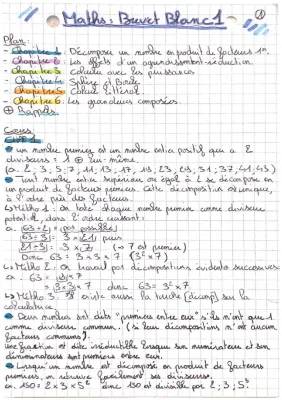 Maths : Brevet Blanc 1
①
Plan :
- Chapitre 1. Décomposer un nombre en produit de facteurs 1ers.
- Chapitre 2. Les effets d'un agrandissement-réduction.
- Chapitre 3. Calculer avec les puissances.
- Chapitre 4. Sphère et Boule.
- Chapitre 5. Calcul littéral.
- Chapitre 6. Les grandeurs composées.
⊕ Rappels.
Cours
• un nombre premier est un nombre entier positif qui a 2
diviseurs : 1 ⊕ lui-même.
(ex. 2 ; 3 ; 5 ; 7 ; 11 ; 13 ; 17 ; 19 ; 23 ; 29 ; 31 ; 37 ; 41 ; 43)
• Tout nombre entier supérieur ou égal à 2 se décompose en
un produit de facteurs premiers. Cette décomposition est unique,
à l'ordre près des facteurs.
↳ Métho 1. On teste chaque nombre premier comme diviseur
potentiel, dans l'ordre croissant :
63 ÷ 2 : (pas possible)
63 ÷ 3 : 3 × 21 puis
21 ÷ 3 : 3 × 7 (→ 7 est premier)
Donc 63 = 3 × 3 × 7 (3² × 7)
↳ Métho 2. On travail par décompositions évidentes successives :
63 = 9 × 7
= 3 × 3 × 7 donc 63 = 3² × 7
↳ Métho 3. Il existe aussi la touche (decomp) sur la
calculatrice.
• Deux nombres sont dits "premiers entre eux" s'ils n'ont que 1
comme diviseur commun. (si leur décompositions n'ont aucun
facteurs communs).
Une fraction est dite irréductible lorsque son numérateur et son
dénominateurs sont premiers entre eux.
• Lorsqu'un nombre est décomposé en produit de facteurs
premiers, on retrouve facilement ses diviseurs :
ex. 150 = 2 × 3 × 5² donc 150 est divisible par 2 ; 3 ; 5 ;